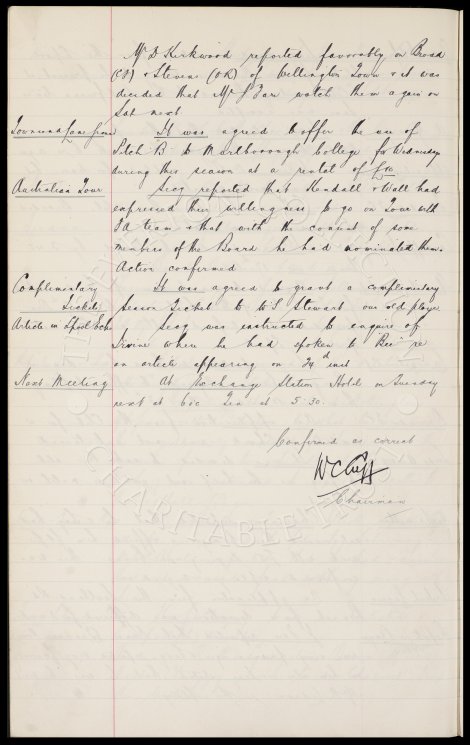 Mr D. Kirkwood reported favorably on Broad
(CF) & Steven (OR) of Wellington Town & it was
decided that Mr J Fare watch them again on
Sat next
Townsend Lane It was agreed to offer the use of
Pitch "B" to Marlborough College for Wednesday
during this season at a rental of
Australian Tour Secy reported that Kendall & Wall had
expressed their willingness to go on Tour with
FA team & that with the consent of some
members of the Board he had nominated them.
Action confirmed
Complimentary It was agreed to grant a complimentary
Tickets Season Ticket to W.S. Stewart our old player
Article in Sports Echo Secy was instructed to enquire of
Irvine when he had spoken to "Bee" re
an article appearing on 24d inst
Next Meeting At Exchange Station Hotel on Tuesday
next at 6oc Tea at 5.30.
Confirmed as correct
W C Cuff
Chairman
CHARITABLE TRUST